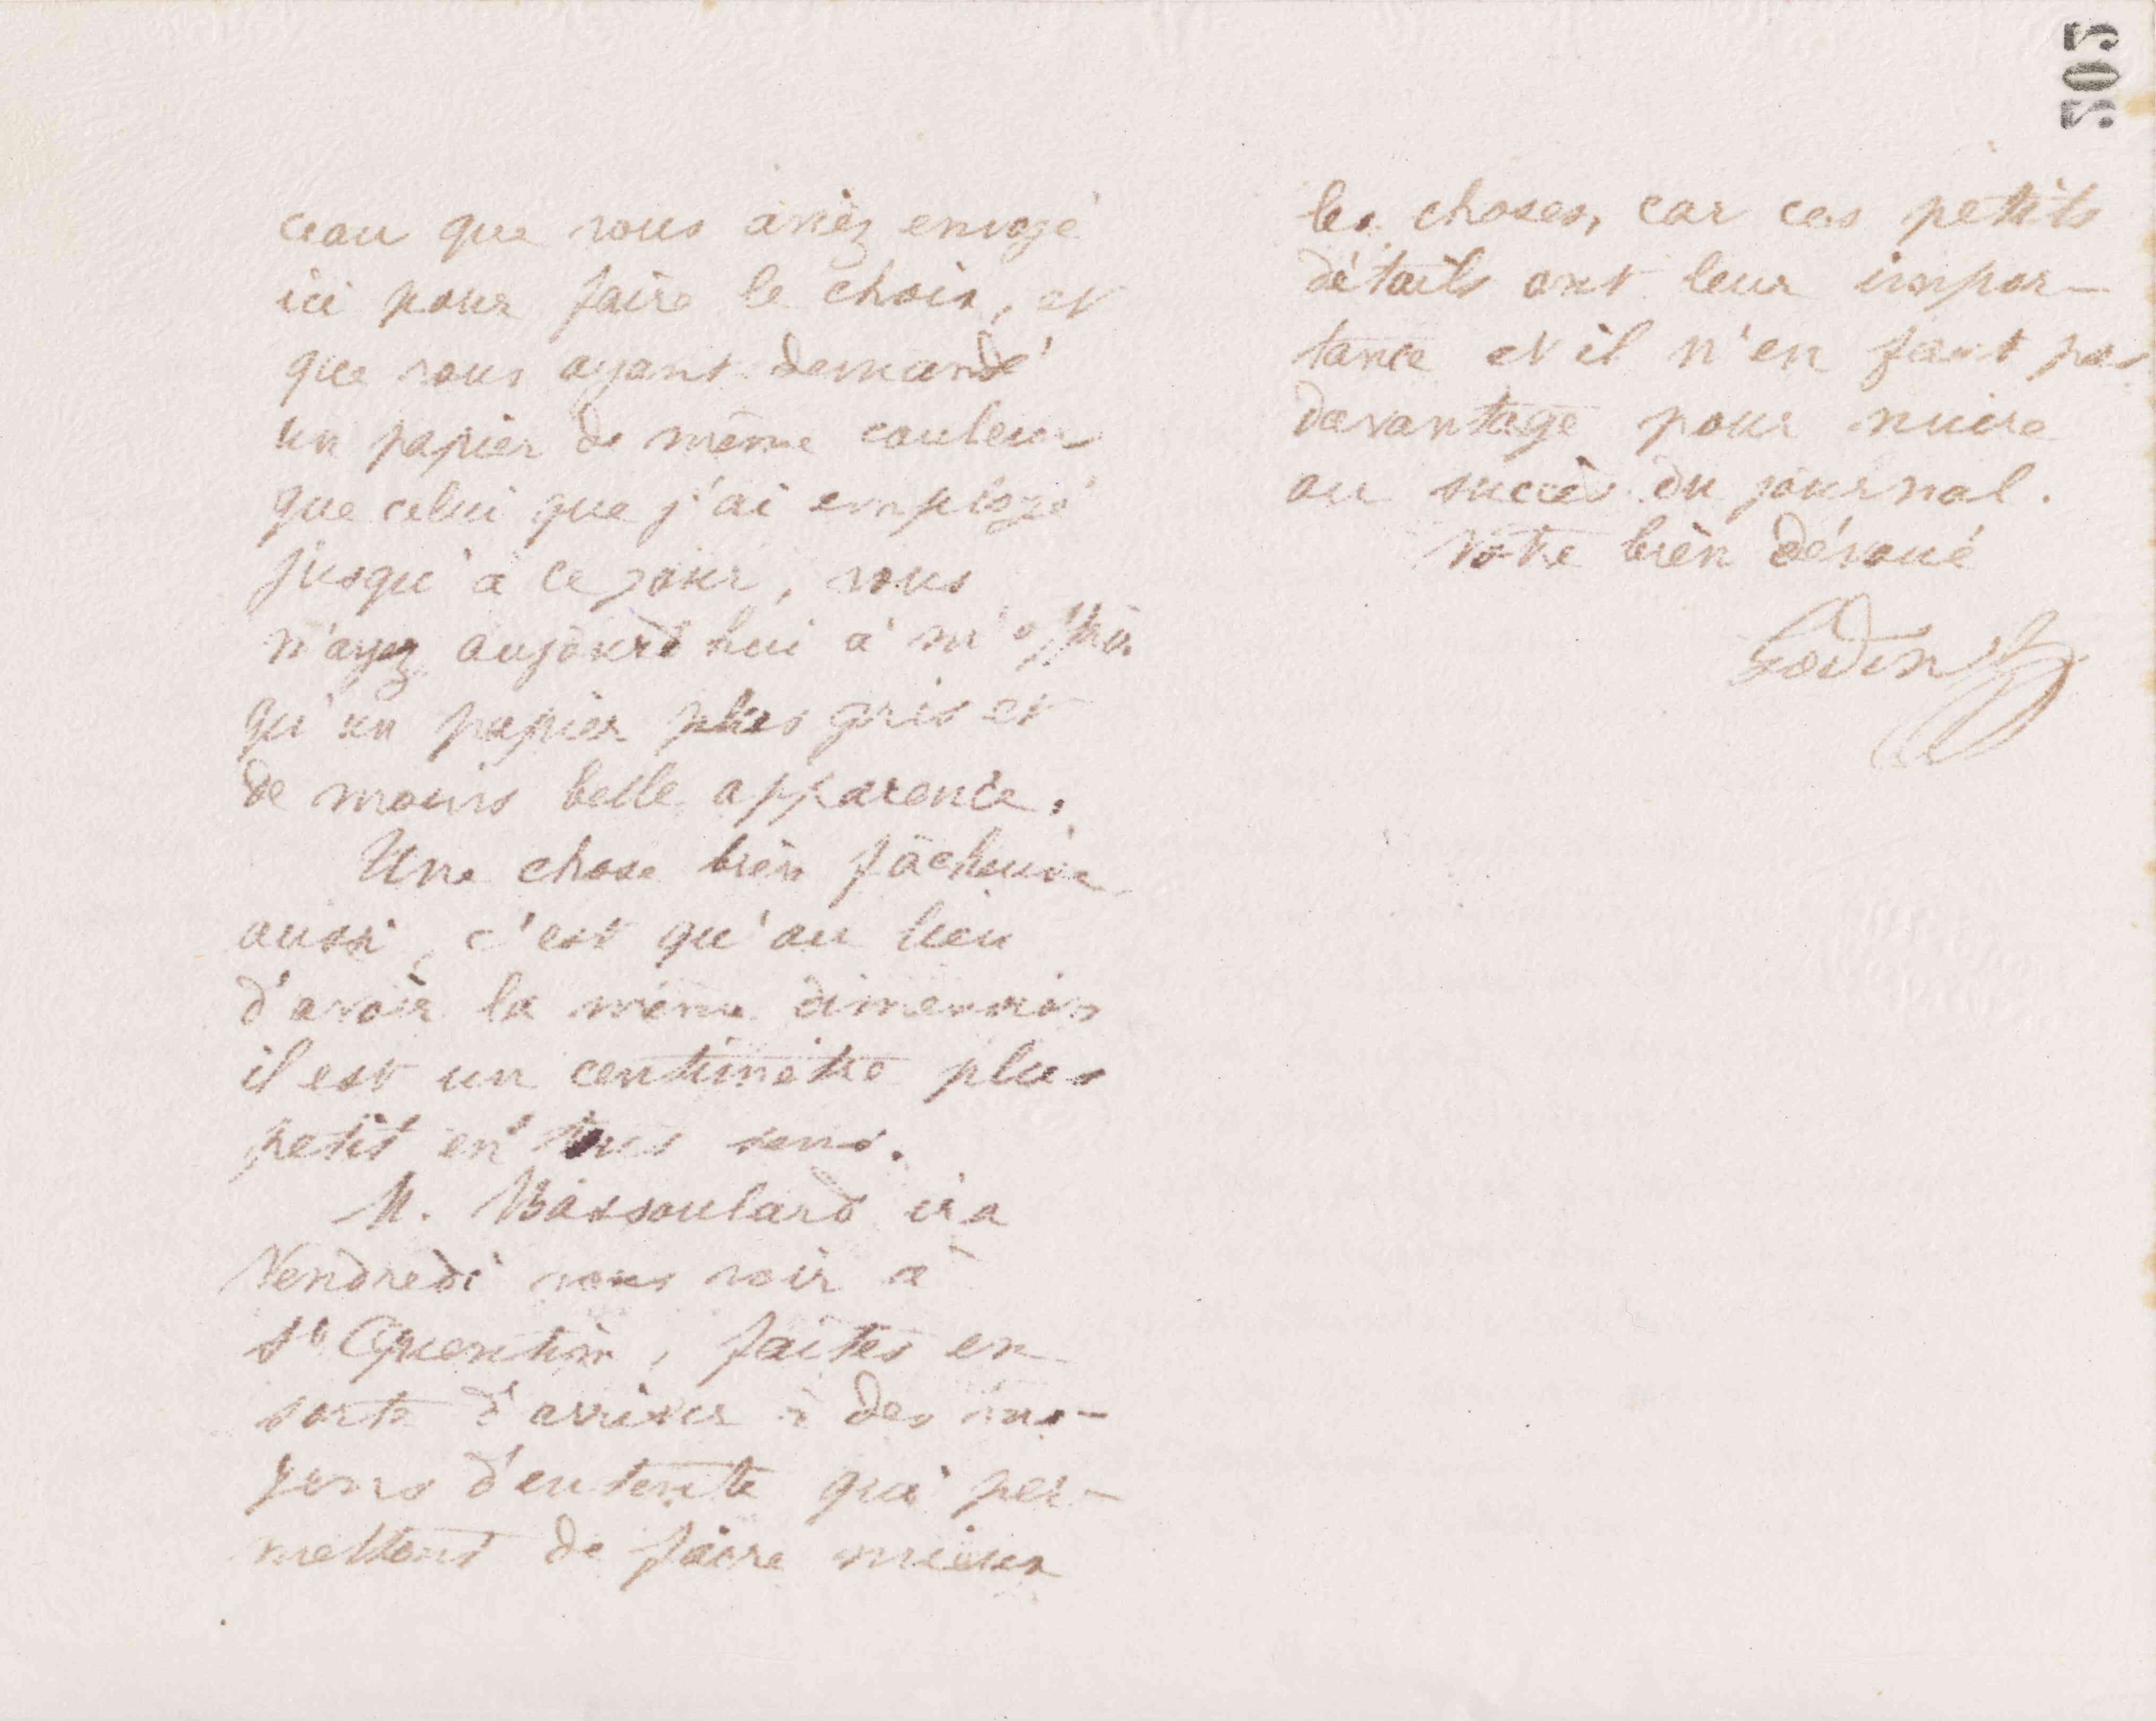 505
ceau que vous aviez envoyé
ici pour faire le choix, et
que vous ayant demandé
un papier de même couleur
que celui que j'ai employé
jusqu'à ce jour, vous
n'ayez aujourd'hui à m'offrir
qu'un papier plus gris et
de moins belle apparence.
Une chose bien fâcheuse
aussi, c'est qu'au lieu
d'avoir la même dimension
il est un centimètre plus
petit en tous sens.
M. Bassoulard ira
Vendredi vous voir à
St Quentin, faites en
sorte d'arriver à des mo-
yens d'entente qui per-
mettent de faire mieux
les choses, car ces petits
détails ont leur impor-
tance et il n'en faut pas
davantage pour nuire
au succès du journal.
Votre bien dévoué
Godin